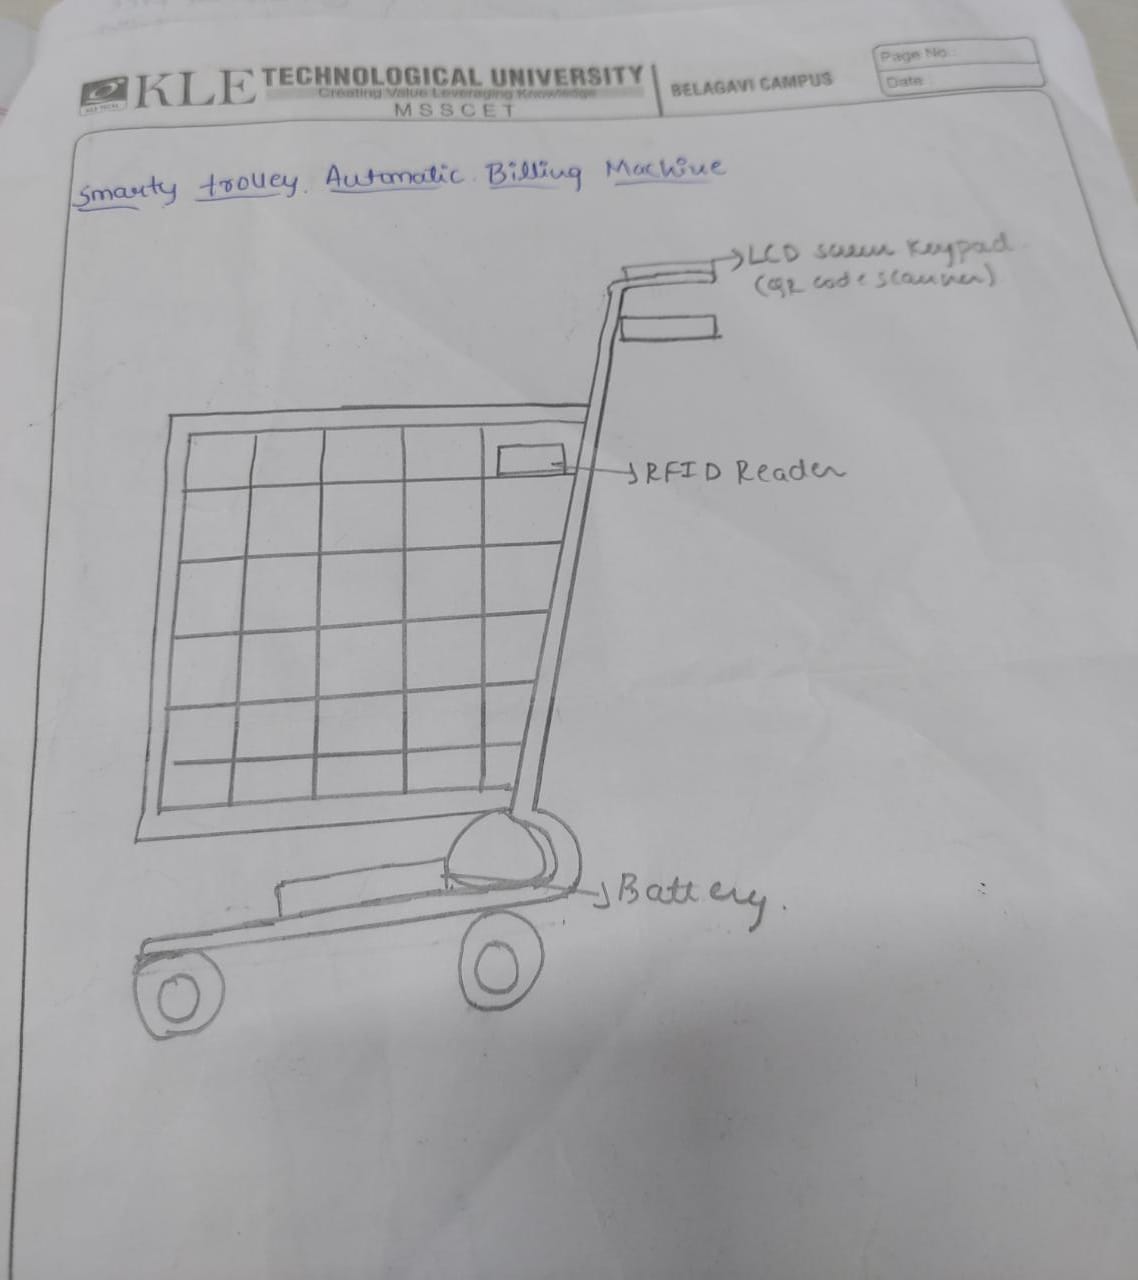 KLE TECHNOLOGICAL UNIVERSITY
Creating Value Leveraging Knowledge
MSSCET
BELAGAVI CAMPUS
Page No.:
Date :
Smarty trolley. Automatic. Billing Machine
LCD screen Keypad
(QR code scanner)
RFID Reader
Battery.